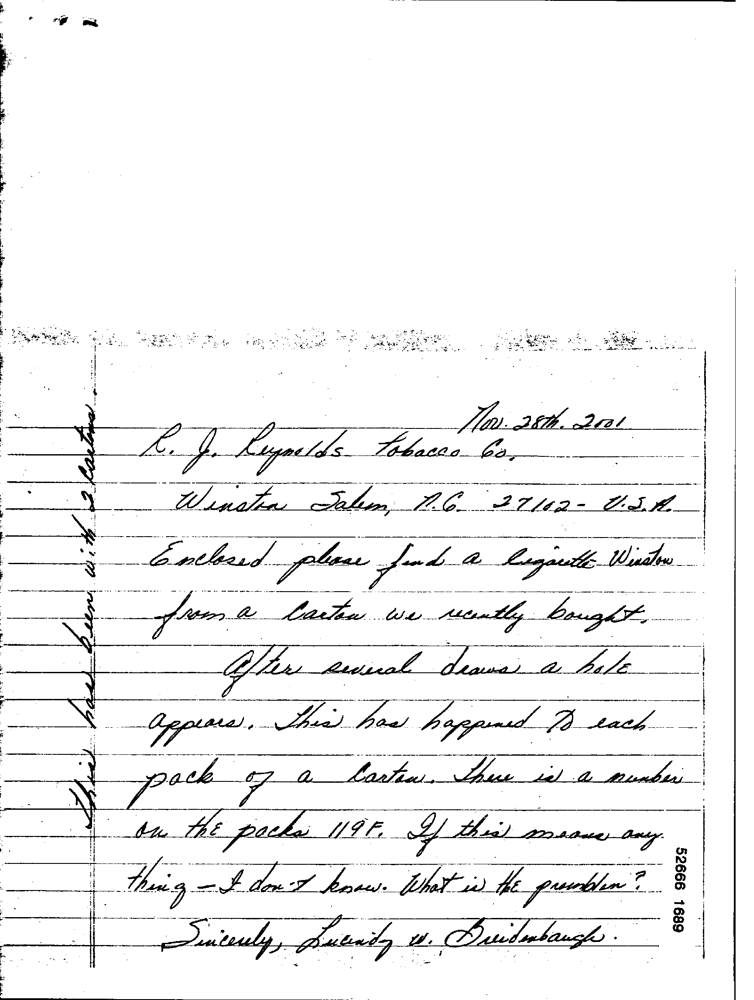 Nov. 28th. 2001
R. J. Reynolds Tobacco Co.
Winston Salem, N.C. 27102 - U.S.A.
Enclosed please find a Cigarette Winston
from a Carton we recently bought.
After several draws a hole
appears. This has happened To each
pack of a Carton. There is a number
on the packs 119F. If this means any
thing - I don't know. What is the
Sincerely, W. Breidenbaugh.
This has been with 2 Cartons.
52666 1689